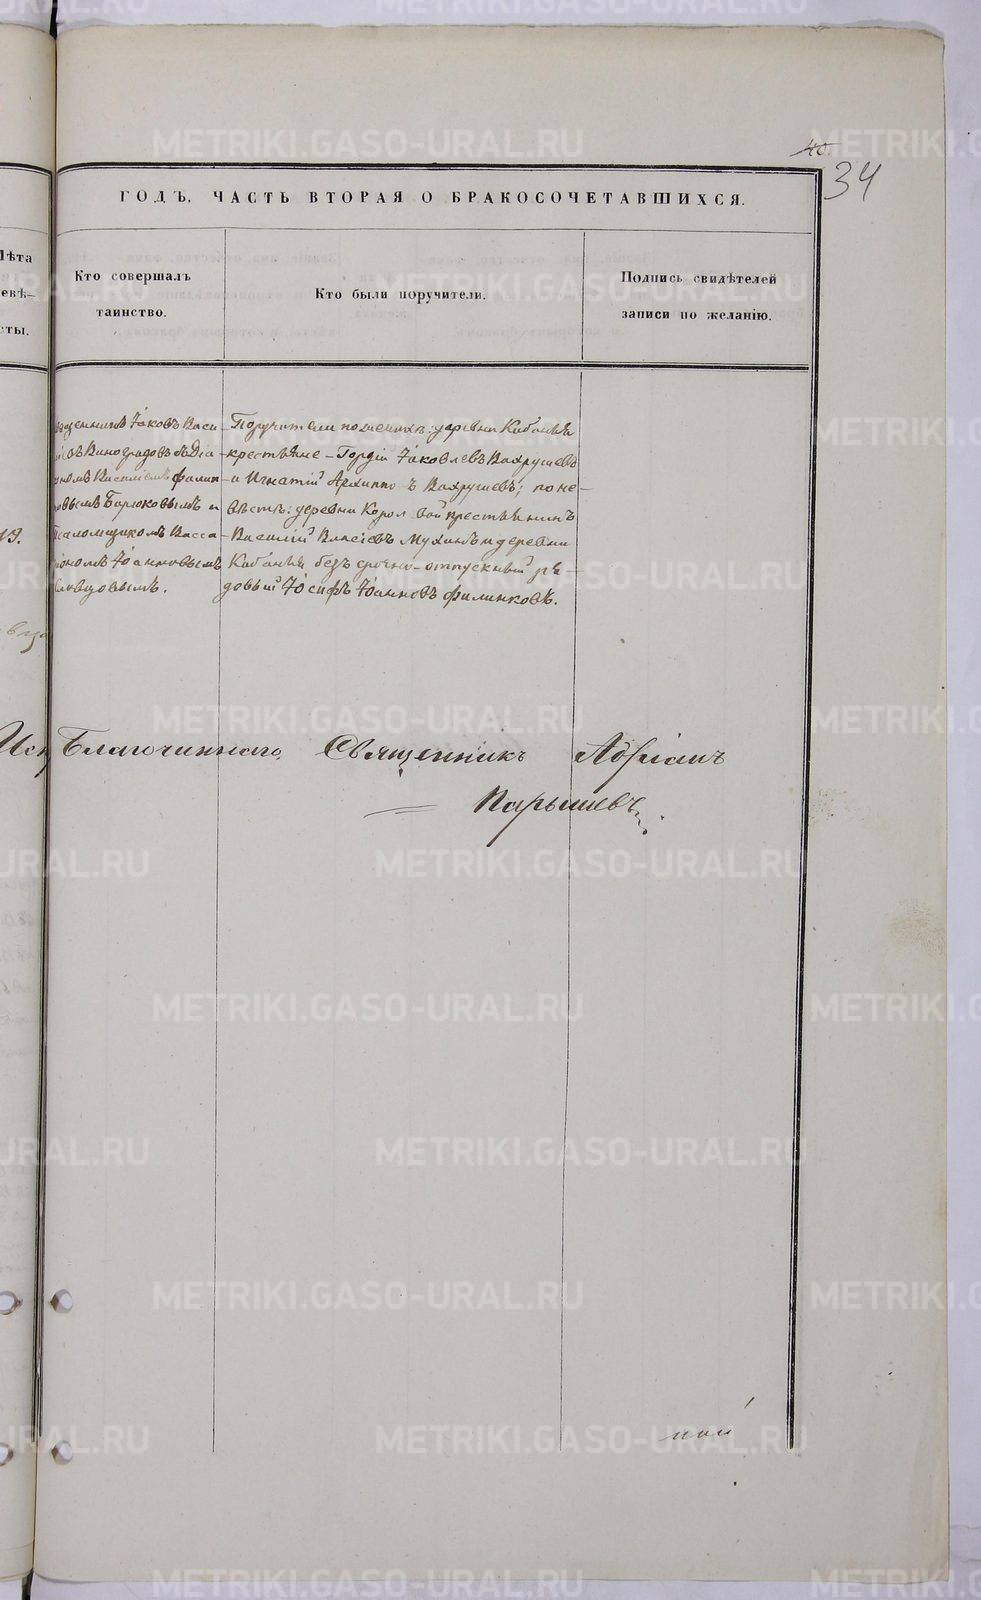 40.
34
ГОДЪ. ЧАСТЬ ВТОРАЯ О БРАКОСОЧЕТАВШИХСЯ.
Лѣта
невѣ-
сты.
Кто совершалъ
таинство.
Кто были поручители.
Подпись свидѣтелей
записи по желанію.
19.
Священникъ Іаковъ Васи-
Виноградовъ съ Діа-
Василіемъ Филип-
повымъ Бирюковымъ и
Псаломщикомъ Васса-
Іоанновымъ
Словцовымъ.
Поручители по женихѣ: деревни Кабанья
крестьяне - Гордій Іаковлевъ Вахрушевъ
и Игнатій Архиппо ъ Вахрушевъ; по не-
вѣстѣ: деревни Корол вой крестьянинъ
Василій Власіевъ Мухинъ и деревни
Кабанья безсрочно-отпускный ря-
довый Іосифъ Іоанновъ Филинковъ.
Исп Благочиннаго, Священникъ Адріанъ
Парышевъ
май
METRIKI.GASO-URAL.RU